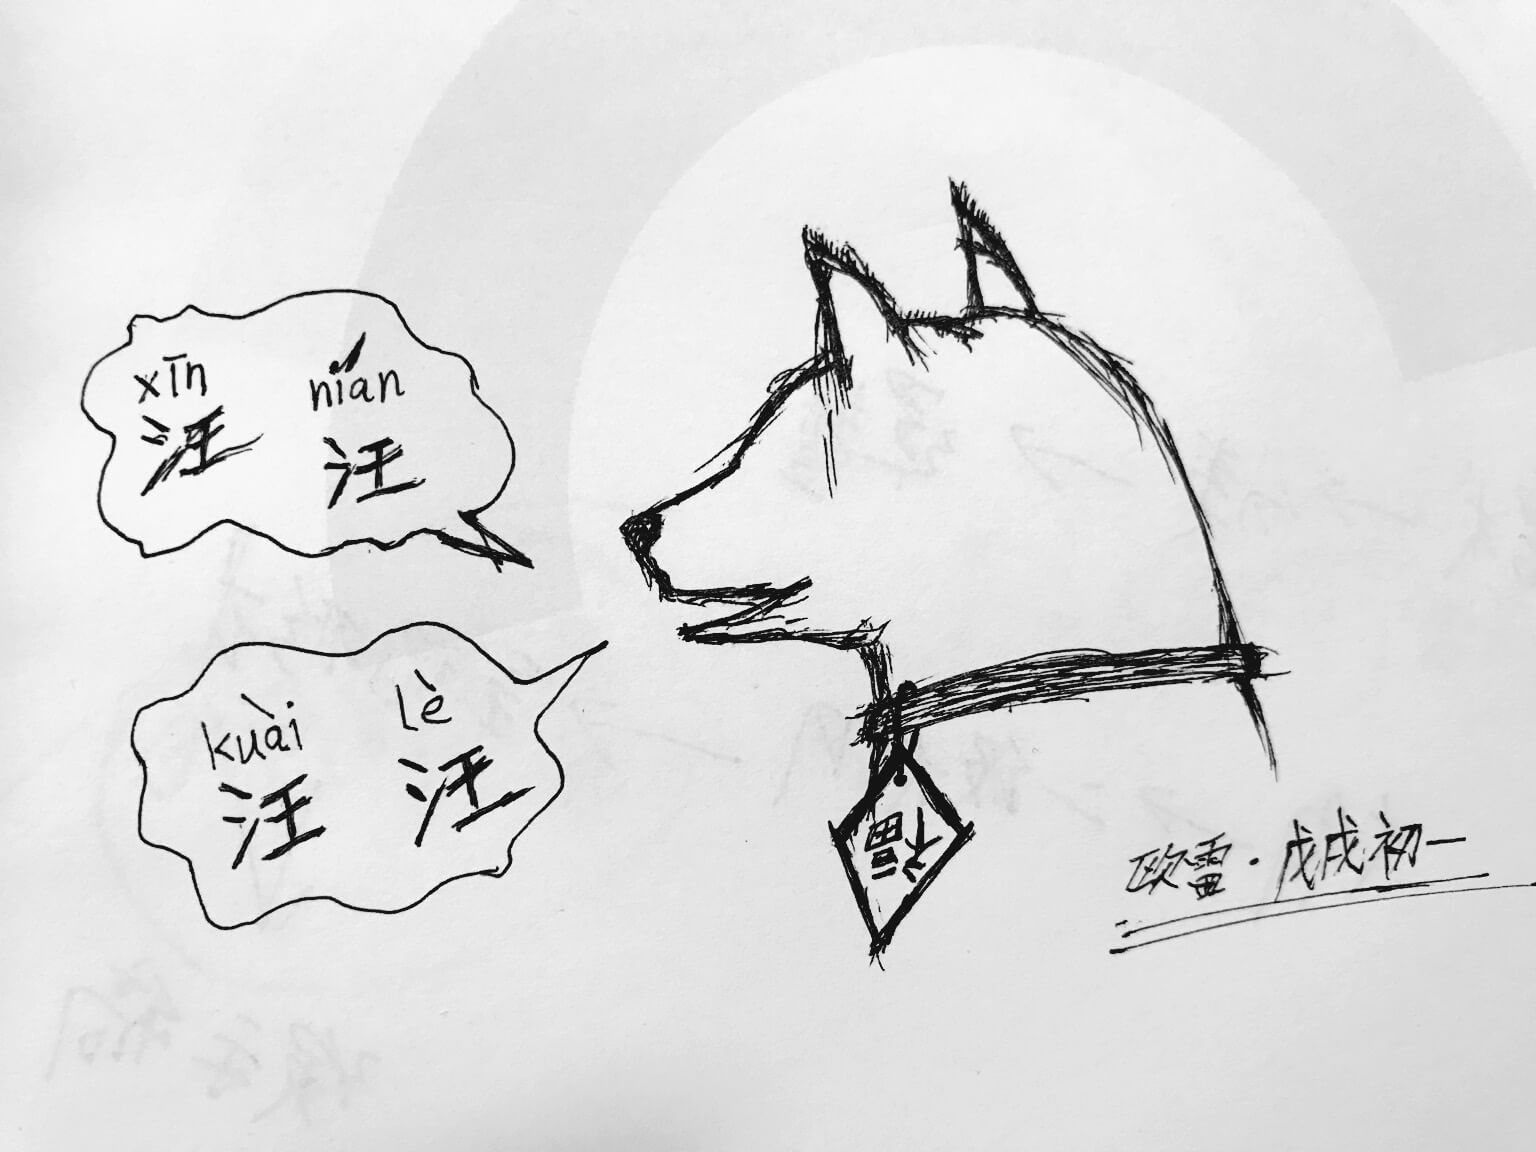 xīn nián
汪 汪
kuài lè
汪 汪
福
欧雷·戊戌初一